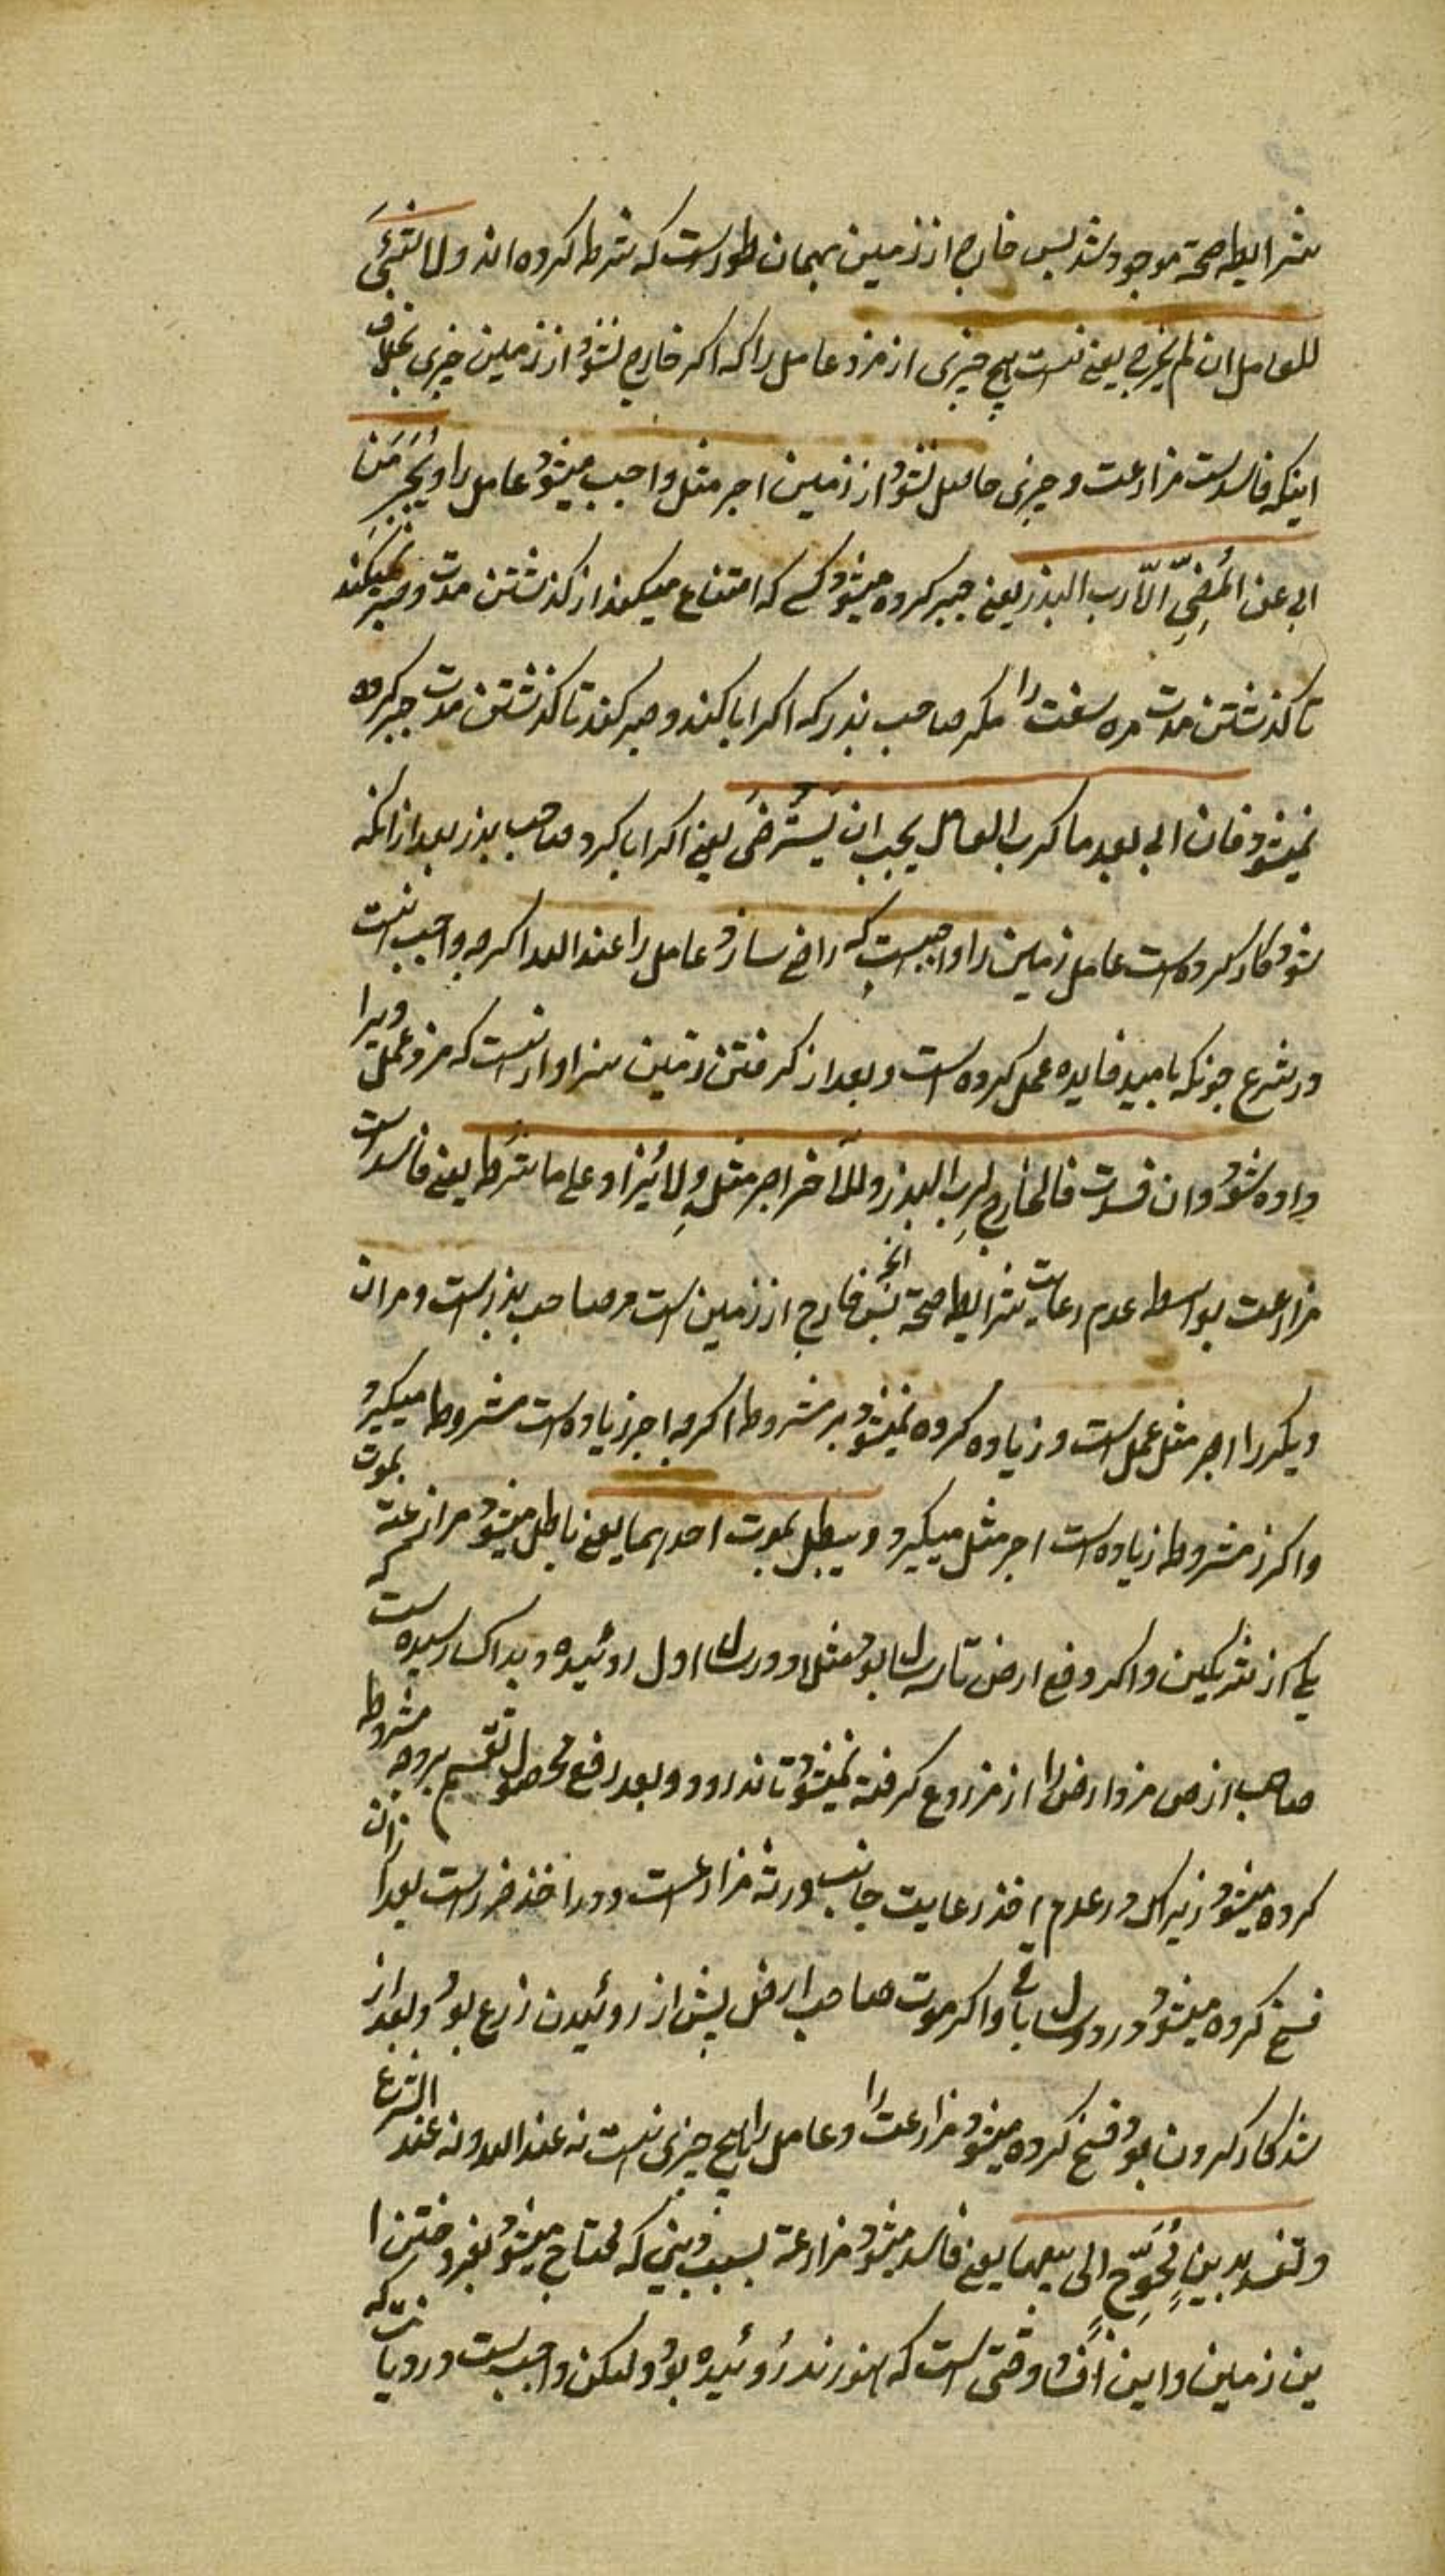 شرایط صحة موجود شد پس خارج از زمین بهمان طورست که شرط کرده اند ولا شئ
للعامل ان لم یخرج یعنی نیست هیچ چیزی از مزد عامل را که اکر خارج نشود از زمین چیزی بخلاف
اینکه فاسدست مزارعت و چیزی حاصل نشود از زمین اجر مثل واجب میشود عامل را ویُجبَر مَن
ابی عن المُضِیّ الّا رب البذر یعنی جبر کرده میشود کسی که امتناع میکند از کذشتن مدت وصبر نمیکند
تا کذشتن مدت مره سفت را مکر صاحب بذر که اکر ابا کند و صبر کند تا کذشتن مدت جبر کرده
نمیشود فان ابی بعد ما کرب العامل یجب ان یُسْتَرضَی یعنی اکر ابا کرد صاحب بذر بعد از انکه
شد کار کرده است عامل زمین را واجبست که راضی سازد عامل را عند الله اکرچه واجب نیست
در شرع چونکه بامید فایده عمل کرده است و بعد از کرفتن زمین سزاوار نیست که مزد عمل ویرا
داده شود وان فسدت فالخارج لرب البذر وللآخر اجر مثله ولا یُزاد علی ما شرط یعنی فاسدست
مزارعت بواسطه عدم رعایت شرایط صحة پس انچه خارج از زمین است مر صاحب بذرست و مر ان
دیکر را اجر مثل عمل است و زیاده کرده نمیشود بر مشروط اکرچه اجر زیاده است مشروط میکیرد
واکر مشروط زیاده است اجر مثل میکیرد ویبطل بموت احدهما یعنی باطل میشود مزارعة بموت
یکی از شریکین واکر دفع ارض تا سه سال بود مثلا و در سال اول روئیده و بداک رسیده است که
صاحب ارض مرد ارض را از مزروع کرفته نمیشود تا ندرود و بعد رفع محصول تقسیم بروجه مشروط
کرده میشود زیراکه در عدم اخذ رعایت جانب ورثه مزارعست و در اخذ ضررست بعد ازان
فسخ کرده میشود در دو سال باقی واکر موت صاحب ارض پیش از روئیدن زرع بود و بعد از
شد کار کردن بود فسخ کرده میشود مزارعت را وعامل را هیچ چیزی نیست نه عند الله ونه عند الشرع
وتفسد بدینٍ مُحوِّجٍ الی بیعها یعنی فاسد میشود مزارعة بسبب دینی که محتاج میشود بفروختن ا
ین زمین واین افساد وقتی است که هنوز نه روئیده بود ولیکن واجب است در دیانت که